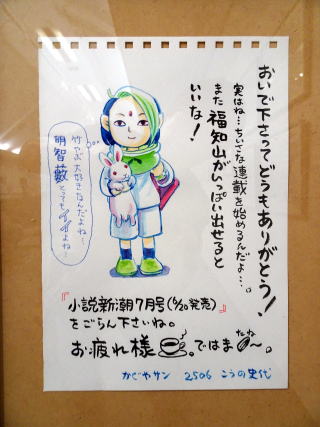 おいで下さってどうもありがとう!
実はね…ちいさな連載を始めるんだよ…。
また福知山がいっぱい出せると
いいな!
竹やぶ大好きなんだよね~
明智藪とってもイイよね~
『小説新潮7月号(6/20発売)』
をごらん下さいね。
お疲れ様 。ではまたね~。
かぐやサン 2506 こうの史代